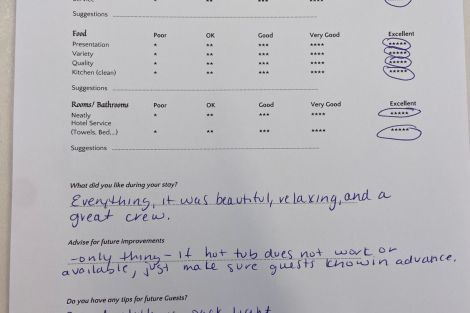 Suggestions
Food Poor OK Good Very Good Excellent
Presentation * ** *** **** *****
Variety * ** *** **** *****
Quality * ** *** **** *****
Kitchen (clean) * ** *** **** *****
Suggestions
Rooms/ Bathrooms Poor OK Good Very Good Excellent
Neatly * ** *** **** *****
Hotel Service
(Towels, Bed,..) * ** *** **** *****
Suggestions
What did you like during your stay?
Everything, it was beautiful, relaxing, and a
great crew.
Advise for future improvements
-only thing - if hot tub does not work or
available, just make sure guests know in advance.
Do you have any tips for future Guests?
pack light